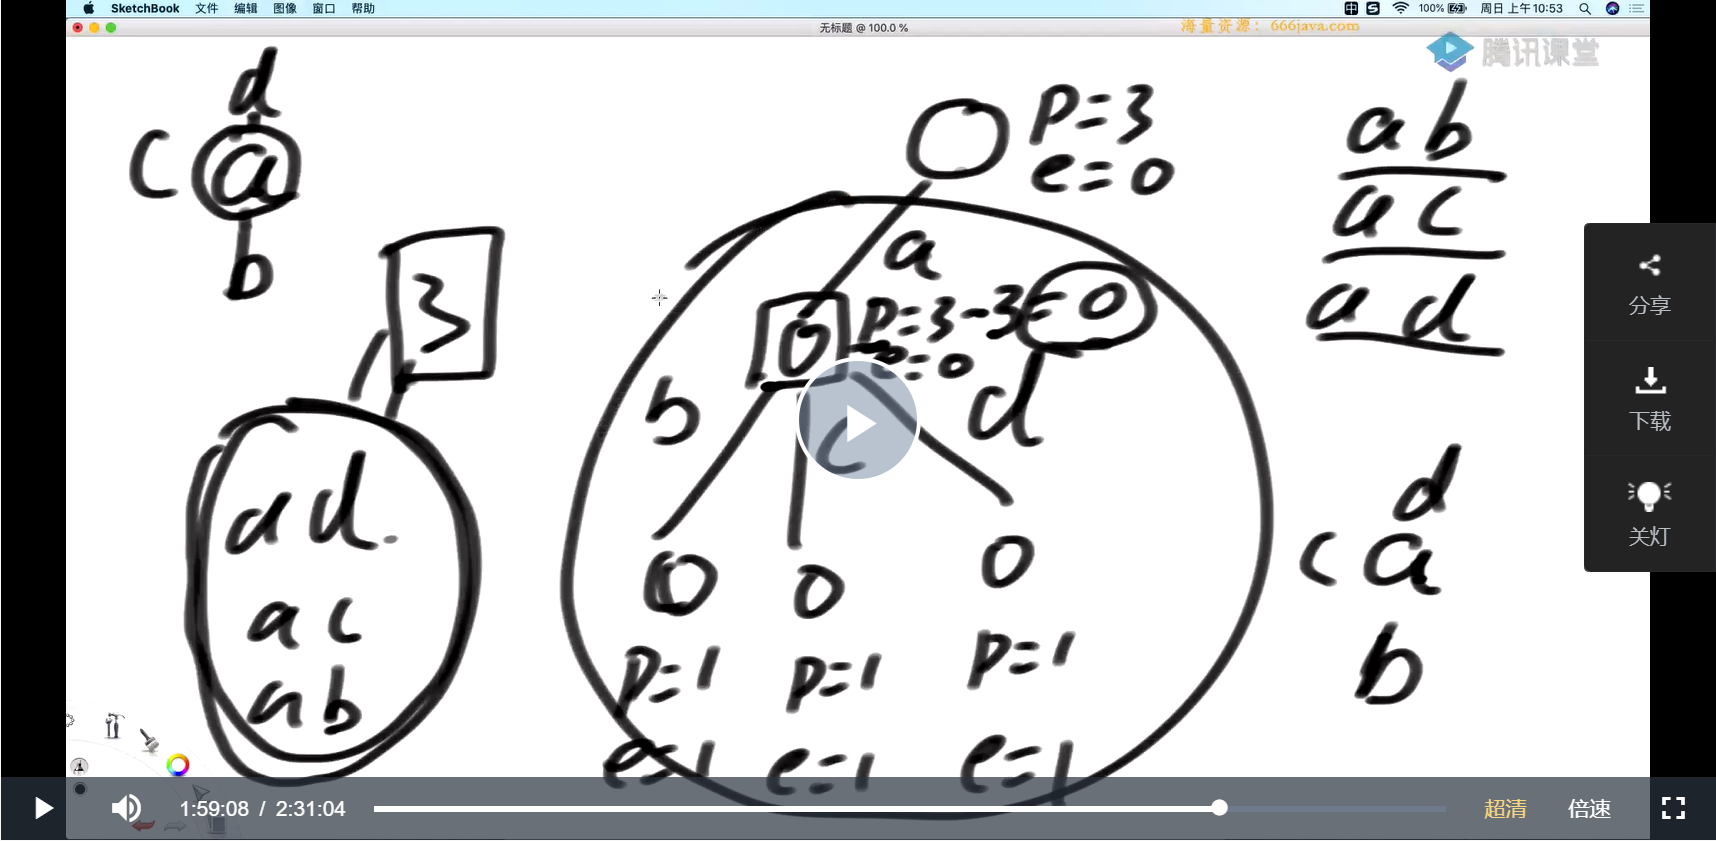 SketchBook 文件 编辑 图像 窗口 帮助 100% 周日 上午10:53
无标题 @ 100.0 %
海量资源：666java.com
腾讯课堂
d
c a
b
3
ad.
ac
ab
p=3
e=0
a
0 p=3-3=0
e=0
b c d
0 0 0
p=1 p=1 p=1
e=1 e=1 e=1
ab
ac
ad
d
c a
b
分享
下载
关灯
1:59:08 / 2:31:04 超清 倍速